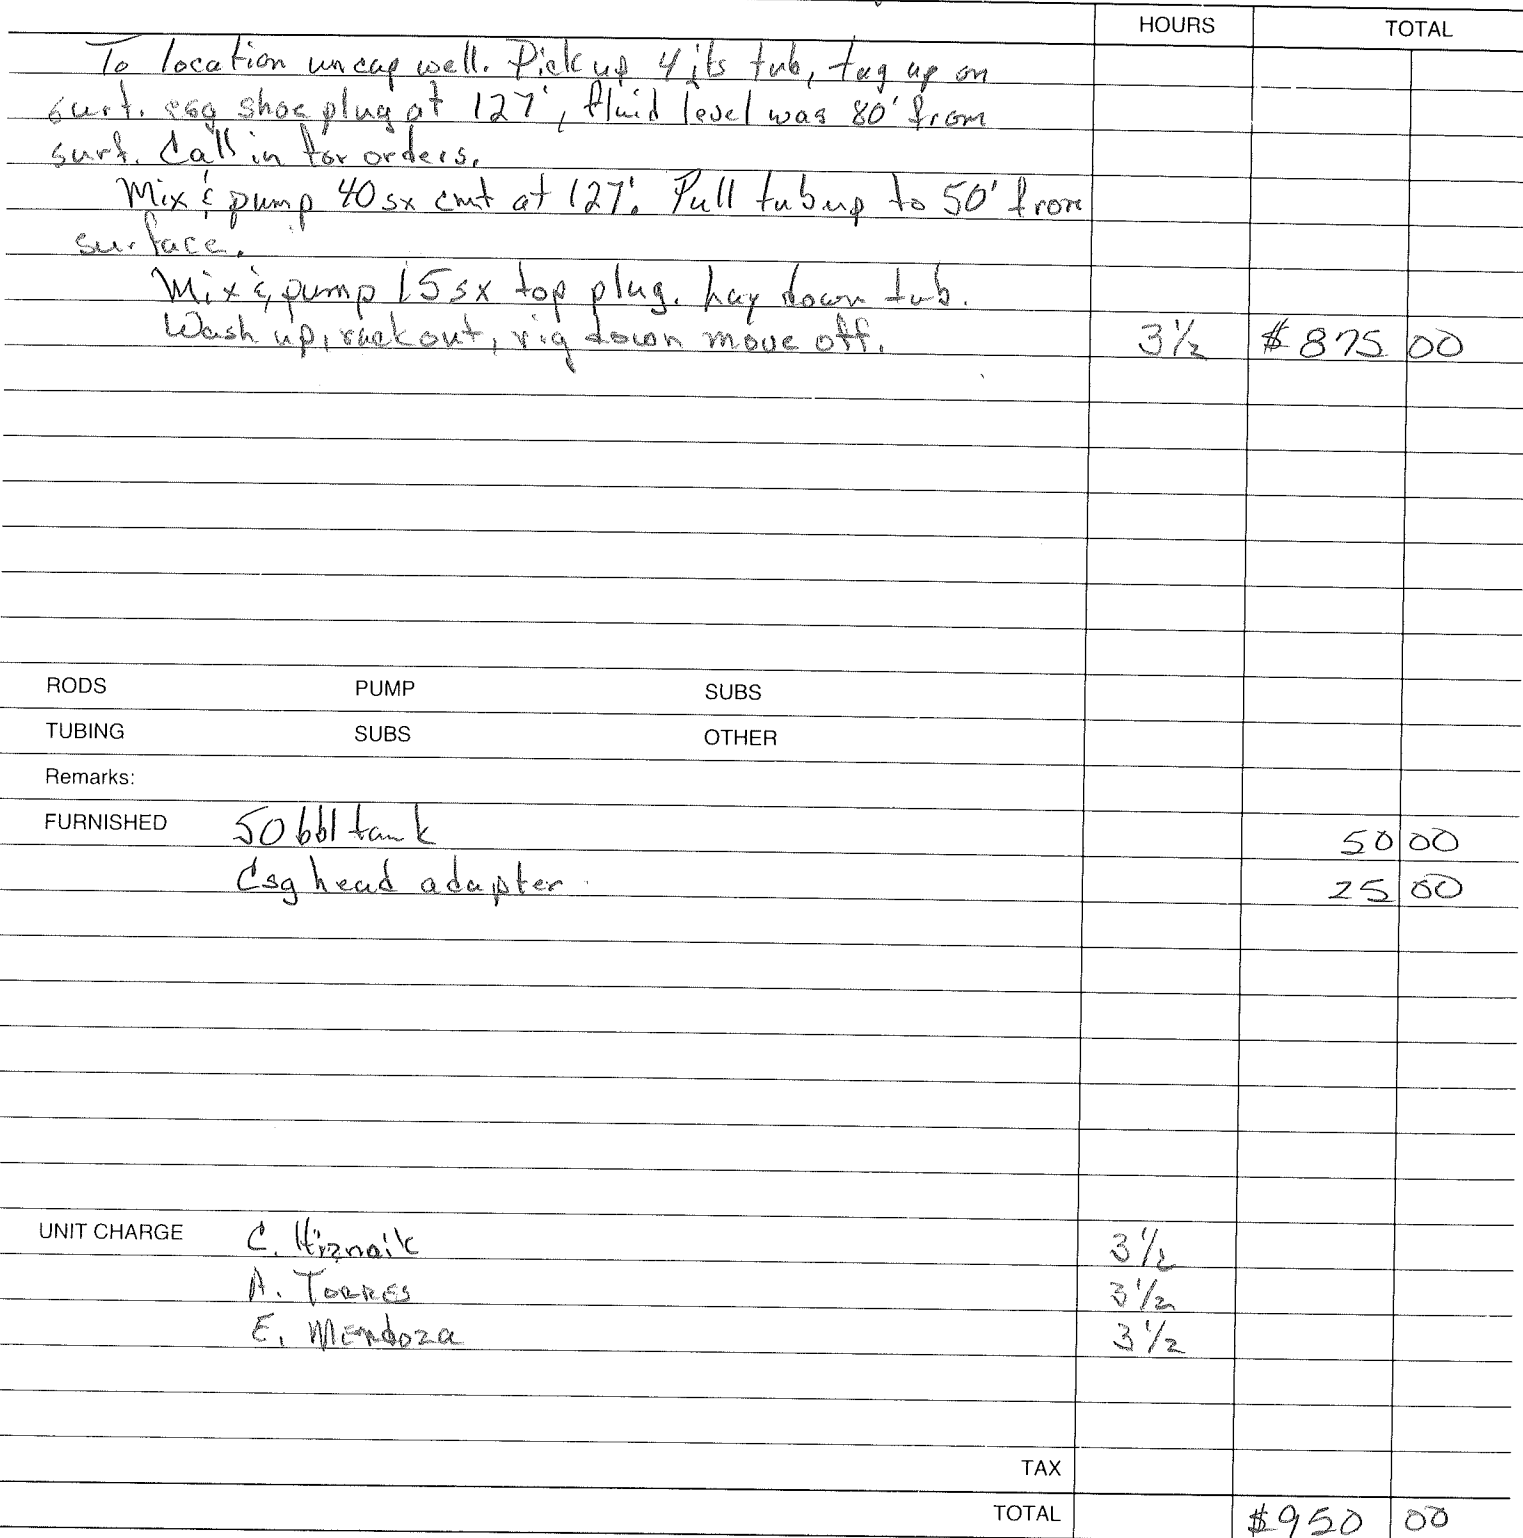 HOURS TOTAL
To location uncap well. Pick up 4 jts tub, tag up on
surf. csg shoe plug at 127', fluid level was 80' from
surf. Call in for orders.
Mix & pump 40 sx cmt at 127'. Pull tub up to 50' from
surface.
Mix & pump 15 sx top plug. Lay down tub.
Wash up, rack out, rig down move off. 3 1/2 $875 00
RODS PUMP SUBS
TUBING SUBS OTHER
Remarks:
FURNISHED 50 bbl tank 50 00
Csg head adapter 25 00
UNIT CHARGE C. 3 1/2
A. TORRES 3 1/2
E. Mendoza 3 1/2
TAX
TOTAL $950 00